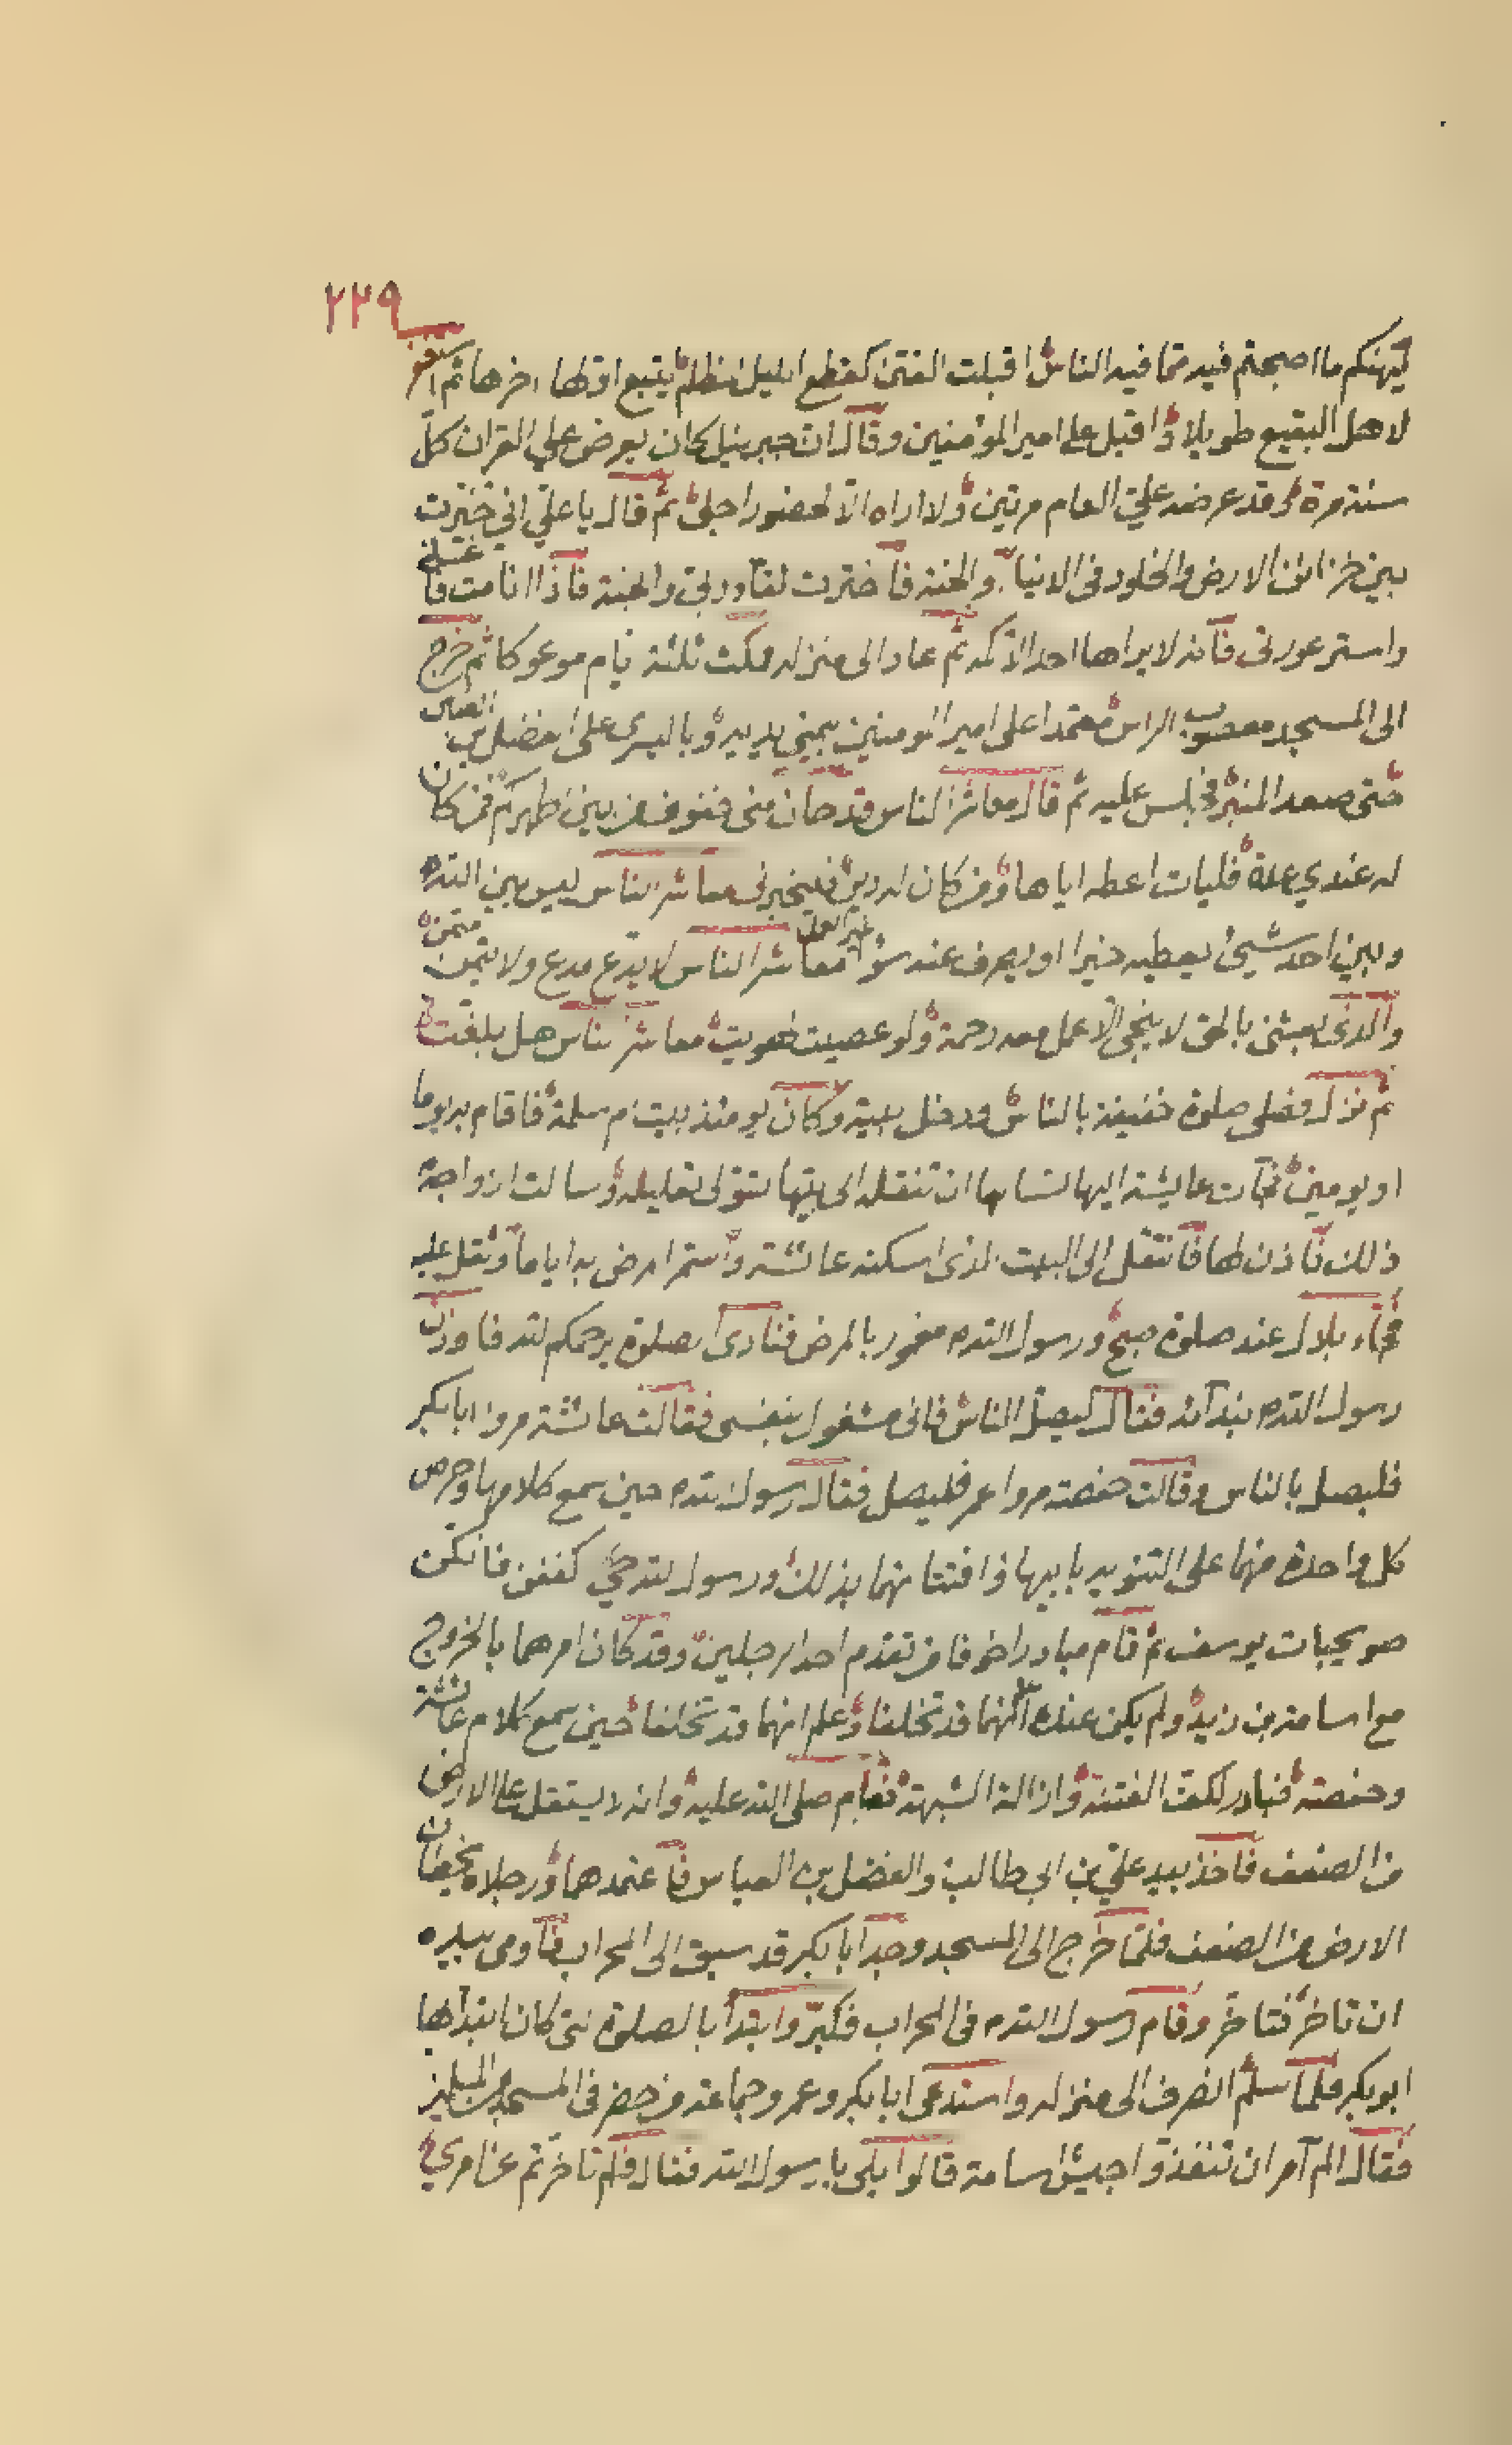 ٢٢٩
ليهنكم ما اصبحتم فيه مما فيه الناس اقبلت الفتن كقطع الليل المظلم يتبع اولها اخرها ثم استغفر
لاهل البقيع طويلا و اقبل على امير المؤمنين وقال ان جبرئيل كان يعرض علي القران كل
سنة مرة وقد عرضه علي العام مرتين ولا اراه الا لحضور اجلي ثم قال يا علي اني خيرت
بين خزائن الارض والخلود في الدنيا والجنة فاخترت لقاء ربي والجنة فاذا انا مت فاغسلني
واستر عورتي فانه لا يراها احد الا كمه ثم عاد الى منزله فمكث ثلثة ايام موعوكا ثم خرج
الى المسجد معصوب الراس معتمدا على امير المومنين بيمنى يديه وباليسرى على الفضل بن العباس
حتى صعد المنبر فجلس عليه ثم قال معاشر الناس قد حان مني خفوف من بين اظهركم فمن كان
له عندي عدة فليات اعطه اياها ومن كان له دين فليخبرني معاشر الناس ليس بين الله
وبين احد شيئ يعطيه خيرا او يصرف عنه سوأ غير العمل معاشر الناس لا يدع مدع ولا يتمن متمن
والذي بعثني بالحق لا ينجي الا عمل معه رحمة ولو عصيت لهويت معاشر الناس هل بلغت
ثم نزل فصلى صلوة خفيفة بالناس ودخل بيته وكان يومئذ بيت ام سلمة فاقام به يوما
او يومين فجاءت عايشة اليها تسالها ان تنقله الى بيتها لتتولى تعليله وسالت ازواجه
ذلك فاذن لها فانتقل الى البيت الذي اسكنه عائشة واستمر المرض به اياما وثقل عليه
فجاء بلال عند صلوة صبح ورسول الله مغمور بالمرض فنادى الصلوة يرحمكم الله فاوذن
رسول الله بندآئه فقال ليصل الناس فاني مشغول بنفسي فقالت عائشة مروا ابا بكر
فليصل بالناس وقالت حفصة مروا عمر فليصل فقال رسول الله حين سمع كلامها وحرص
كل واحدة منهما على التنويه بابيها وافتتانهما بذلك ورسول الله حي كففن فانكن
صويحبات يوسف ثم قام مبادرا خوفا من تقدم احد الرجلين وقد كان امرهما بالخروج
مع اسامة بن زيد ولم يكن عنده انهما قد تخلفا وعلم انهما قد تخلفا حين سمع كلام عائشة
وحفصة فبادر لكف الفتنة وازالة الشبهة فقام صلى الله عليه وانه لا يستقل على الارض
من الضعف فاخذ بيد علي بن ابي طالب والفضل بن العباس فاعتمدهما ورجلاه يخطان
الارض من الضعف فلما خرج الى المسجد وجد ابا بكر قد سبق الى المحراب فاومى بيده
ان تاخر فتاخر وقام رسول الله في المحراب فكبر وابتدأ بالصلوة التي كان ابتدأها
ابو بكر فلما سلم انصرف الى منزله واستدعى ابا بكر وعمر وجماعة من حضر في المسجد من المسلمين
فقال الم آمر ان تنفذوا جيش اسامة قالوا بلى يا رسول الله فقال فلم تاخرتم عن امري